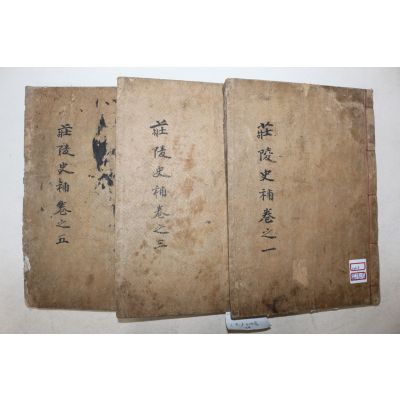 莊陵史補卷之一
莊陵史補卷之三
莊陵史補卷之五